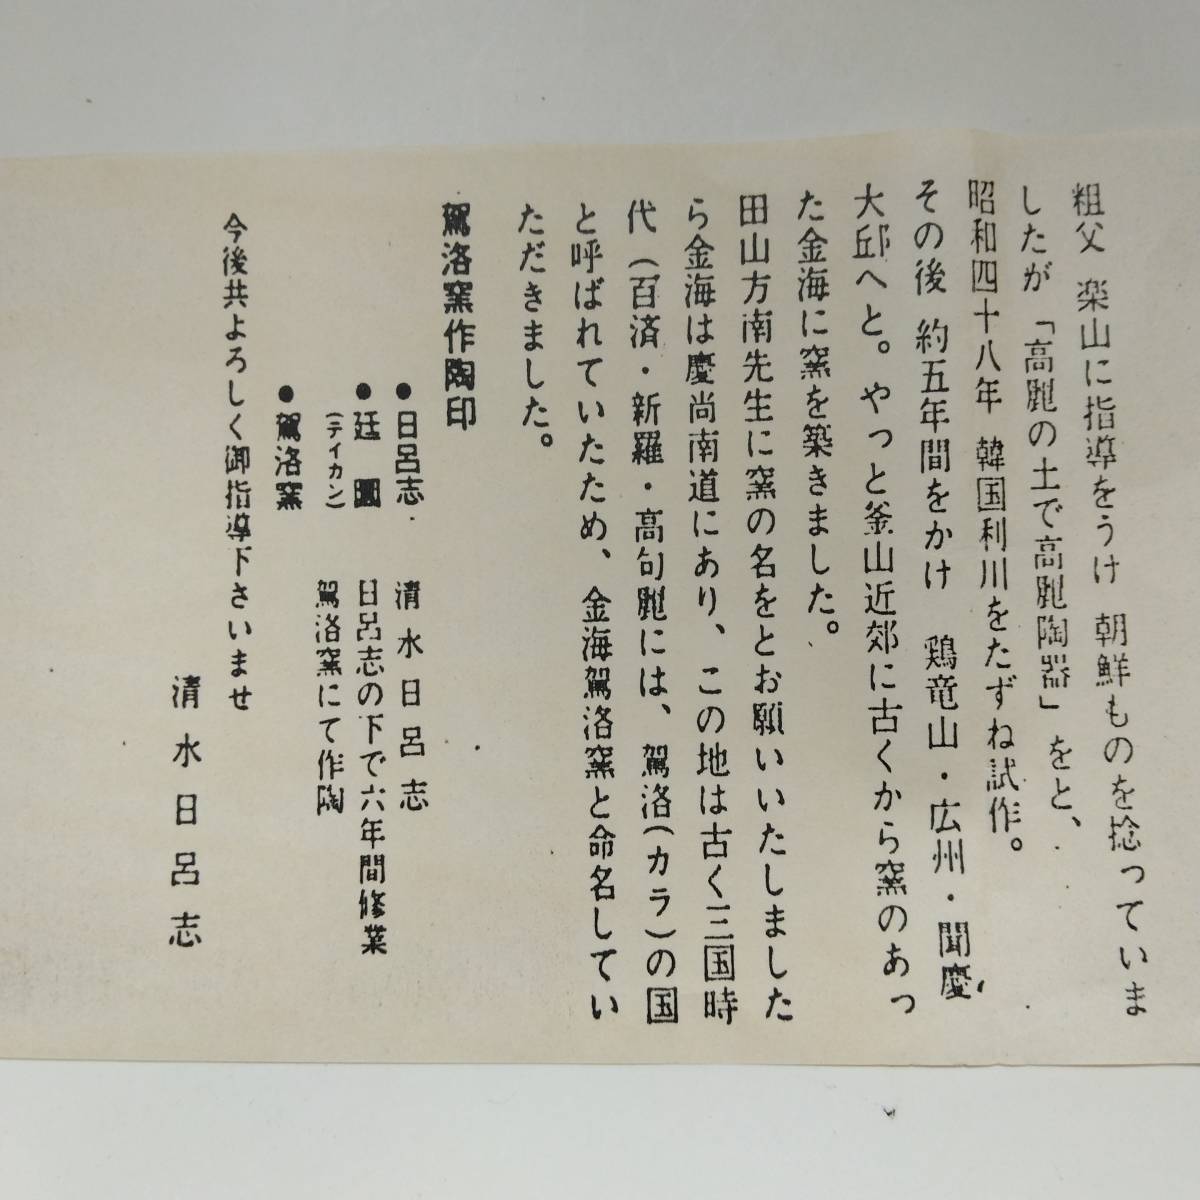 粗父 楽山に指導をうけ 朝鮮ものを捻っていま
したが「高麗の土で高麗陶器」をと、
昭和四十八年 韓国利川をたずね試作。
その後 約五年間をかけ 鶏竜山・広州・聞慶,
大邱へと。やっと釜山近郊に古くから窯のあっ
た金海に窯を築きました。
田山方南先生に窯の名をとお願いいたしました
ら金海は慶尚南道にあり、この地は古く三国時
代(百済・新羅・高句麗には、駕洛(カラ)の国
と呼ばれていたため、金海駕洛窯と命名してい
ただきました。
駕洛窯作陶印
●日呂志 清水日呂志
●廷圜 日呂志の下で六年間修業
(テイカン) 駕洛窯にて作陶
●駕洛窯
今後共よろしく御指導下さいませ
清水日呂志